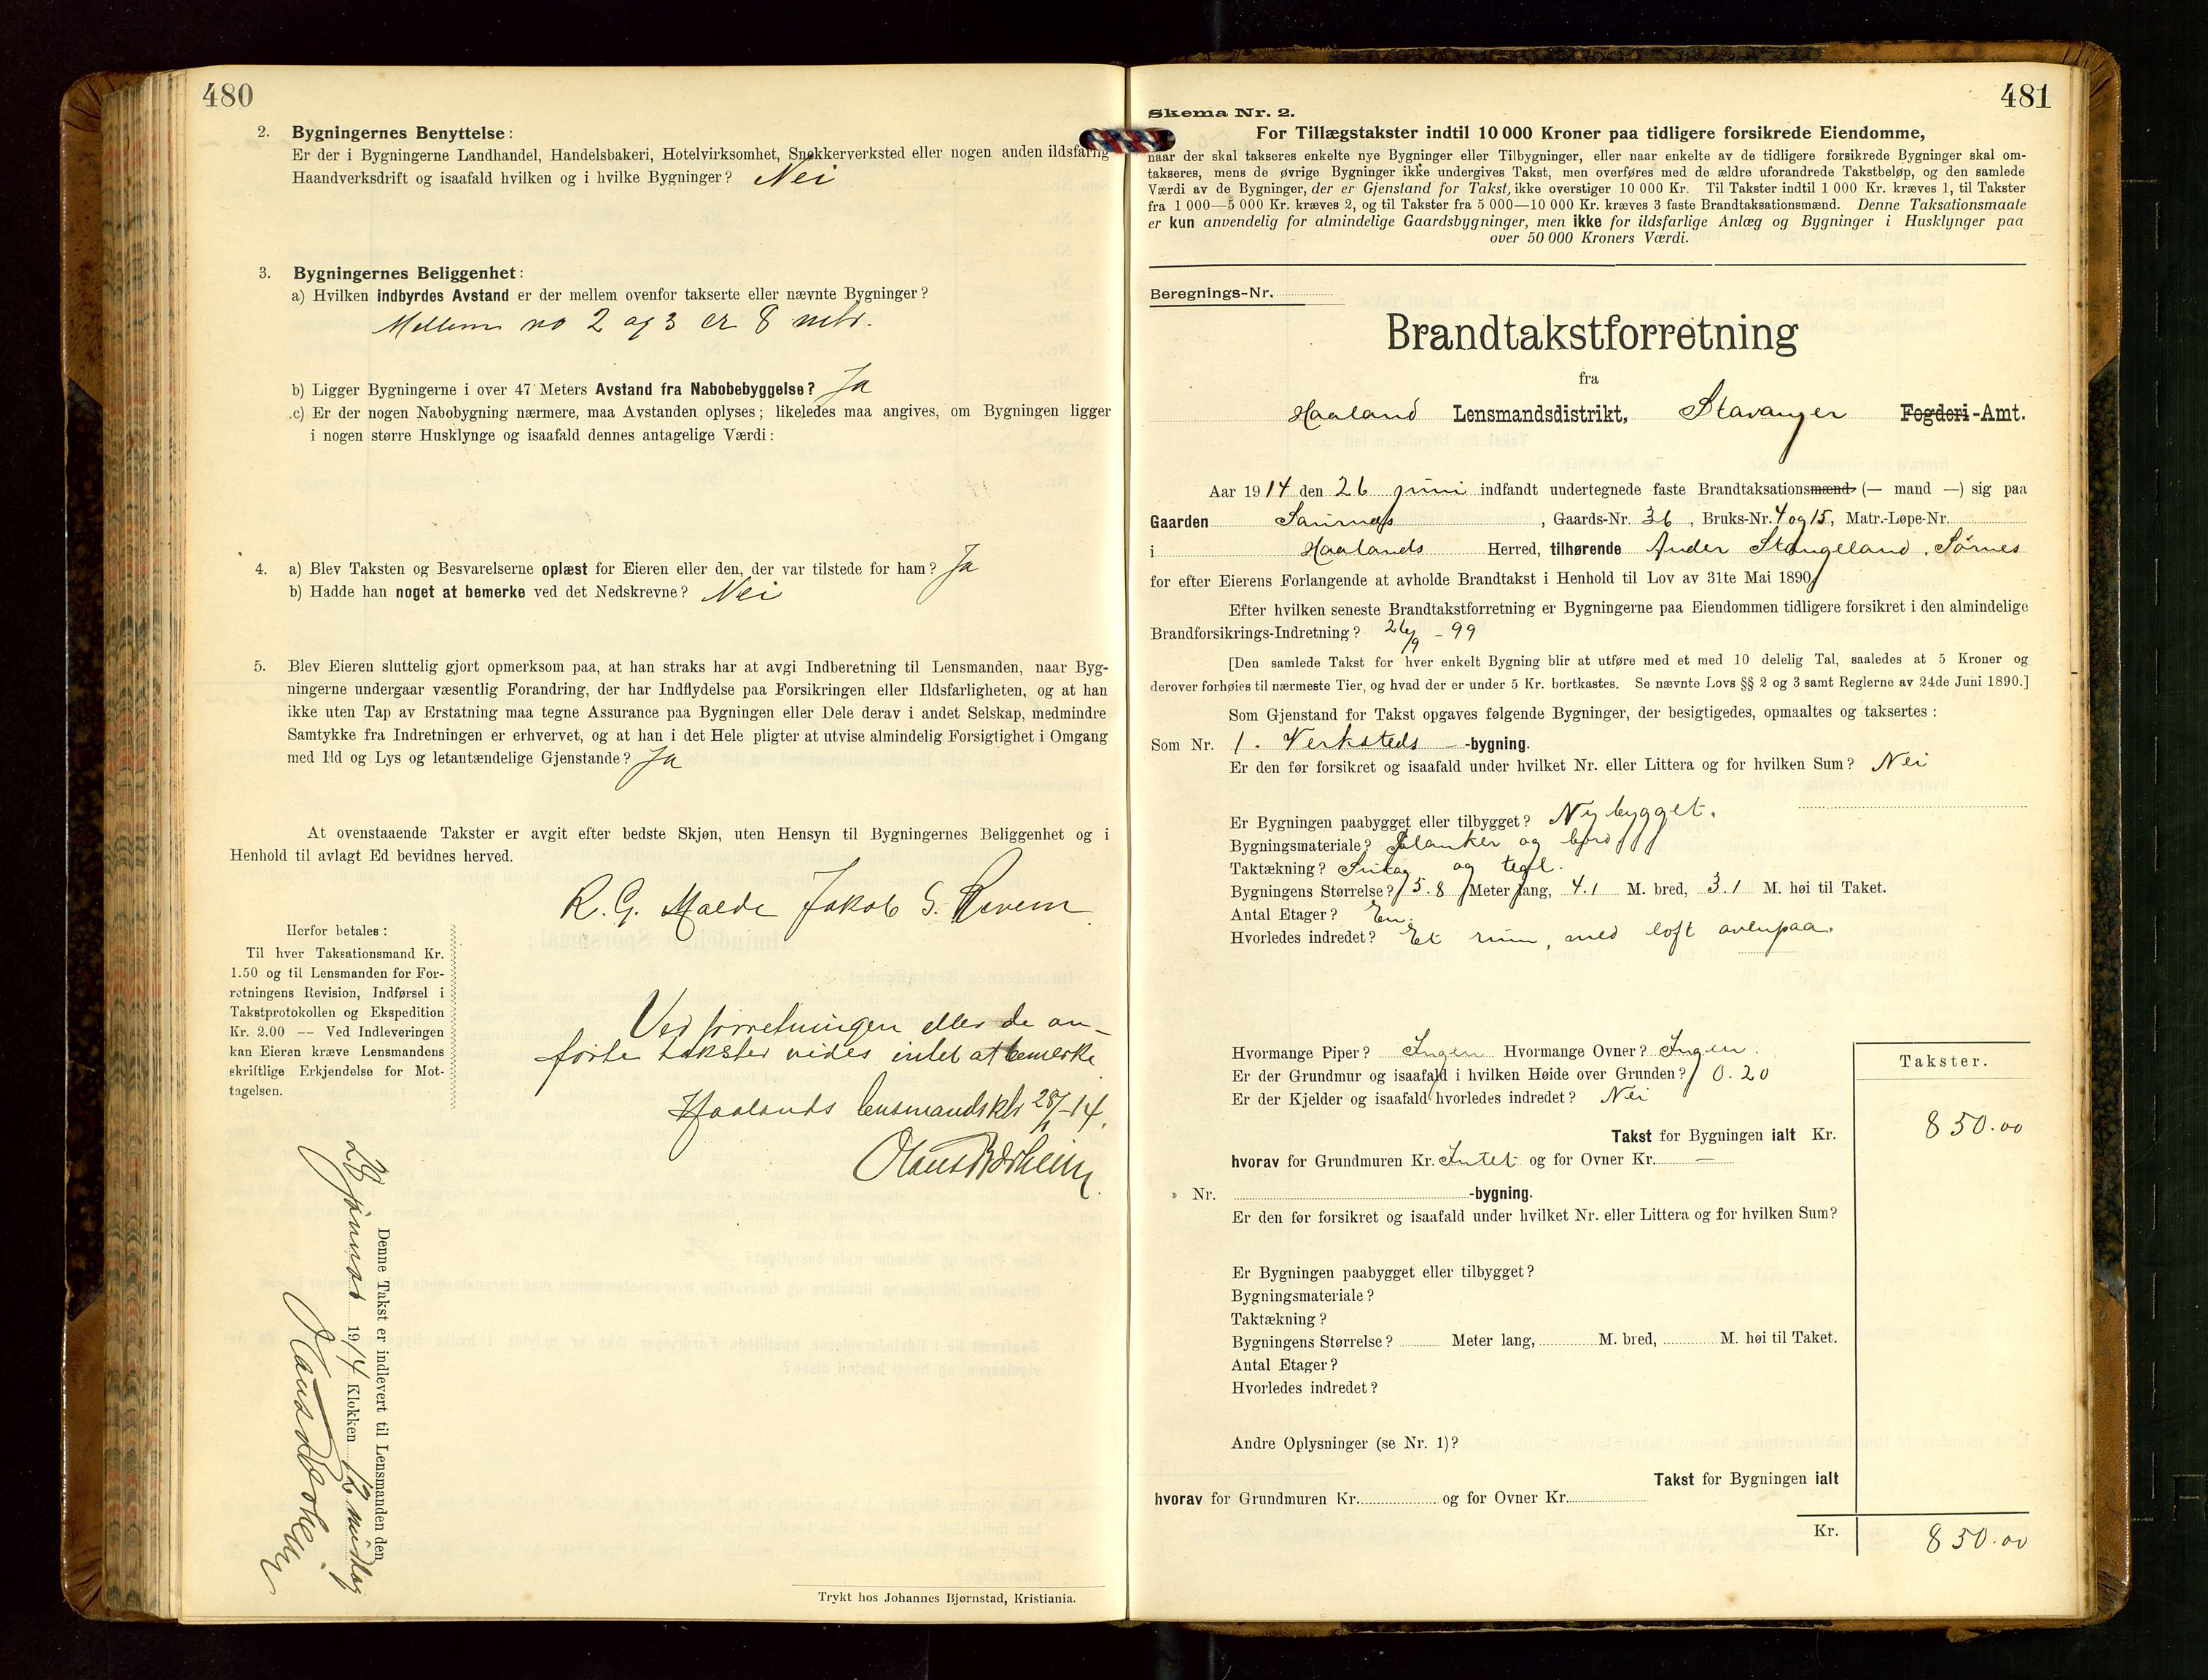 480
2. Bygningernes Benyttelse:
Er der i Bygningerne Landhandel, Handelsbakeri, Hotelvirksomhet, Snekkerverksted eller nogen anden ildsfarlig
Haandverksdrift og isaafald hvilken og i hvilke Bygninger? Nei
3. Bygningernes Beliggenhet:
a) Hvilken indbyrdes Avstand er der mellem ovenfor takserte eller nævnte Bygninger?
Mellem no 2 og 3 er 8 mtr.
b) Ligger Bygningerne i over 47 Meters Avstand fra Nabobebyggelse? Ja
c) Er der nogen Nabobygning nærmere, maa Avstanden oplyses; likeledes maa angives, om Bygningen ligger
i nogen større Husklynge og isaafald dennes antagelige Værdi:
4. a) Blev Taksten og Besvarelserne oplæst for Eieren eller den, der var tilstede for ham? Ja
b) Hadde han noget at bemerke ved det Nedskrevne? Nei
5. Blev Eieren sluttelig gjort opmerksom paa, at han straks har at avgi Indberetning til Lensmanden, naar Byg-
ningerne undergaar væsentlig Forandring, der har Indflydelse paa Forsikringen eller Ildsfarligheten, og at han
ikke uten Tap av Erstatning maa tegne Assurance paa Bygningen eller Dele derav i andet Selskap, medmindre
Samtykke fra Indretningen er erhvervet, og at han i det Hele pligter at utvise almindelig Forsigtighet i Omgang
med Ild og Lys og letantændelige Gjenstande? Ja
At ovenstaaende Takster er avgit efter bedste Skjøn, uten Hensyn til Bygningernes Beliggenhet og i
Henhold til avlagt Ed bevidnes herved.
R. G. Malde Jakob S.
Herfor betales:
Til hver Taksationsmand Kr.
1.50 og til Lensmanden for For-
retningens Revision, Indførsel i
Takstprotokollen og Ekspedition
Kr. 2.00 — Ved Indleveringen
kan Eieren kræve Lensmandens
skriftlige Erkjendelse for Mot-
tagelsen.
Ved forretningen eller de an-
førte takster vides intet at bemerke
Haalands lensmandskts 28/1-14.
Denne Takst er indlevert til Lensmanden den
28 januar 1914 Klokken 12 middag
Trykt hos Johannes Bjørnstad, Kristiania.
481
Skema Nr. 2.
For Tillægstakster indtil 10 000 Kroner paa tidligere forsikrede Eiendomme,
naar der skal takseres enkelte nye Bygninger eller Tilbygninger, eller naar enkelte av de tidligere forsikrede Bygninger skal om-
takseres, mens de øvrige Bygninger ikke undergives Takst, men overføres med de ældre uforandrede Takstbeløp, og den samlede
Værdi av de Bygninger, der er Gjenstand for Takst, ikke overstiger 10 000 Kr. Til Takster indtil 1 000 Kr. kræves 1, til Takster
fra 1 000—5 000 Kr. kræves 2, og til Takster fra 5 000—10 000 Kr. kræves 3 faste Brandtaksationsmænd. Denne Taksationsmaate
er kun anvendelig for almindelige Gaardsbygninger, men ikke for ildsfarlige Anlæg og Bygninger i Husklynger paa
over 50 000 Kroners Værdi.
Beregnings-Nr.
Brandtakstforretning
fra
Haaland Lensmandsdistrikt, Stavanger Fogderi-Amt.
Aar 1914 den 26 juni indfandt undertegnede faste Brandtaksationsmænd (— mand —) sig paa
Gaarden , Gaards-Nr. 36, Bruks-Nr. 4 og 15, Matr.-Løpe-Nr.
i Haalands Herred, tilhørende Stangeland, Sörnes
for efter Eierens Forlangende at avholde Brandtakst i Henhold til Lov av 31te Mai 1890
Efter hvilken seneste Brandtakstforretning er Bygningerne paa Eiendommen tidligere forsikret i den almindelige
Brandforsikrings-Indretning? 26/9 - 99
[Den samlede Takst for hver enkelt Bygning blir at utføre med et med 10 delelig Tal, saaledes at 5 Kroner og
derover forhøies til nærmeste Tier, og hvad der er under 5 Kr. bortkastes. Se nævnte Lovs §§ 2 og 3 samt Reglerne av 24de Juni 1890.]
Som Gjenstand for Takst opgaves følgende Bygninger, der besigtigedes, opmaaltes og taksertes:
Som Nr. 1. Verksteds -bygning.
Er den før forsikret og isaafald under hvilket Nr. eller Littera og for hvilken Sum? Nei
Er Bygningen paabygget eller tilbygget? Ny bygget.
Bygningsmateriale? Planker og bord
Taktækning? og tegl.
Bygningens Størrelse? 5.8 Meter lang, 4.1 M. bred, 3.1 M. høi til Taket.
Antal Etager? En.
Hvorledes indredet? Et rum, med loft ovenpaa.
Hvormange Piper? Ingen Hvormange Ovner? Ingen.
Er der Grundmur og isaafald i hvilken Høide over Grunden? 0.20
Er der Kjelder og isaafald hvorledes indredet? Nei
Takster.
Takst for Bygningen ialt Kr. 850.00
hvorav for Grundmuren Kr. Intet og for Ovner Kr. —
» Nr. -bygning.
Er den før forsikret og isaafald under hvilket Nr. eller Littera og for hvilken Sum?
Er Bygningen paabygget eller tilbygget?
Bygningsmateriale?
Taktækning?
Bygningens Størrelse? Meter lang, M. bred, M. høi til Taket.
Antal Etager?
Hvorledes indredet?
Andre Oplysninger (se Nr. 1)?
Takst for Bygningen ialt
hvorav for Grundmuren Kr. og for Ovner Kr.
Kr. 850.00